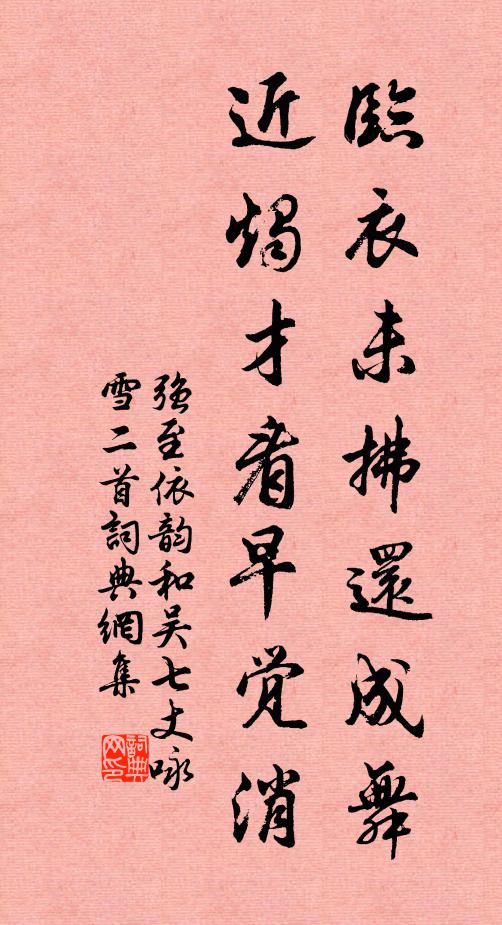 臨衣未拂還成舞
近燭才看早觉消
強至依韵和吴七丈咏
雪二首詞典網集
詞典
网印